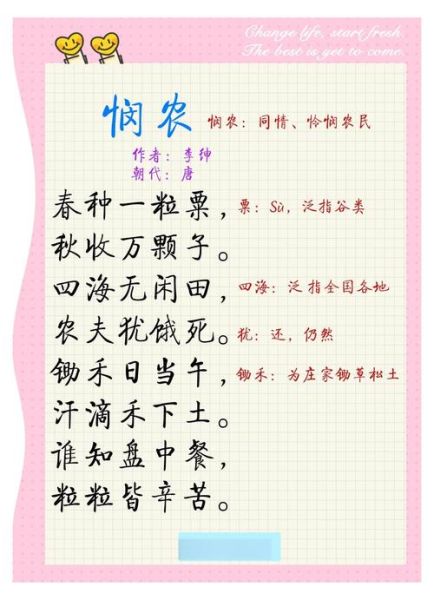 Change life, start fresh.
The best is yet to come.
悯农 悯农：同情、怜悯农民
作者：李绅
朝代：唐
春种一粒粟， 粟：Sù，泛指谷类
秋收万颗子。
四海无闲田， 四海：泛指全国各地
农夫犹饿死。 犹：还，仍然
锄禾日当午， 锄禾：为庄家锄草松土
汗滴禾下土。
谁知盘中餐，
粒粒皆辛苦。